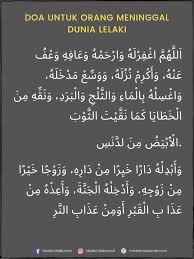 DOA UNTUK ORANG MENINGGAL
DUNIA LELAKI
اَللَّهُمَّ اغْفِرْلَهُ وَارْحَمْهُ وَعَافِهِ وَعْفُ
عَنْهُ، وَأَكْرِمْ نُزُلَهُ، وَوَسِّعْ مَدْخَلَهُ،
وَاغْسِلْهُ بِالْمَاءِ وَالثَّلْجِ وَالْبَرَدِ، وَنَقِّهِ مِنَ
الْخَطَايَا كَمَا نَقَّيْتَ الثَّوْبَ
الْأَبْيَضُ مِنَ الدَّنَسِ.
وَأَبْدِلْهُ دَارًا خَيْرًا مِنْ دَارِهِ، وَزَوْجًا خَيْرًا
مِنْ زَوْجِهِ. وَأَدْخِلْهُ الْجَنَّةَ، وَأَعِذْهُ مِنْ
عَذَا بِ الْقَبْرِ أَوْمِنْ عَذَابِ النَّرِ
Media Maklumat